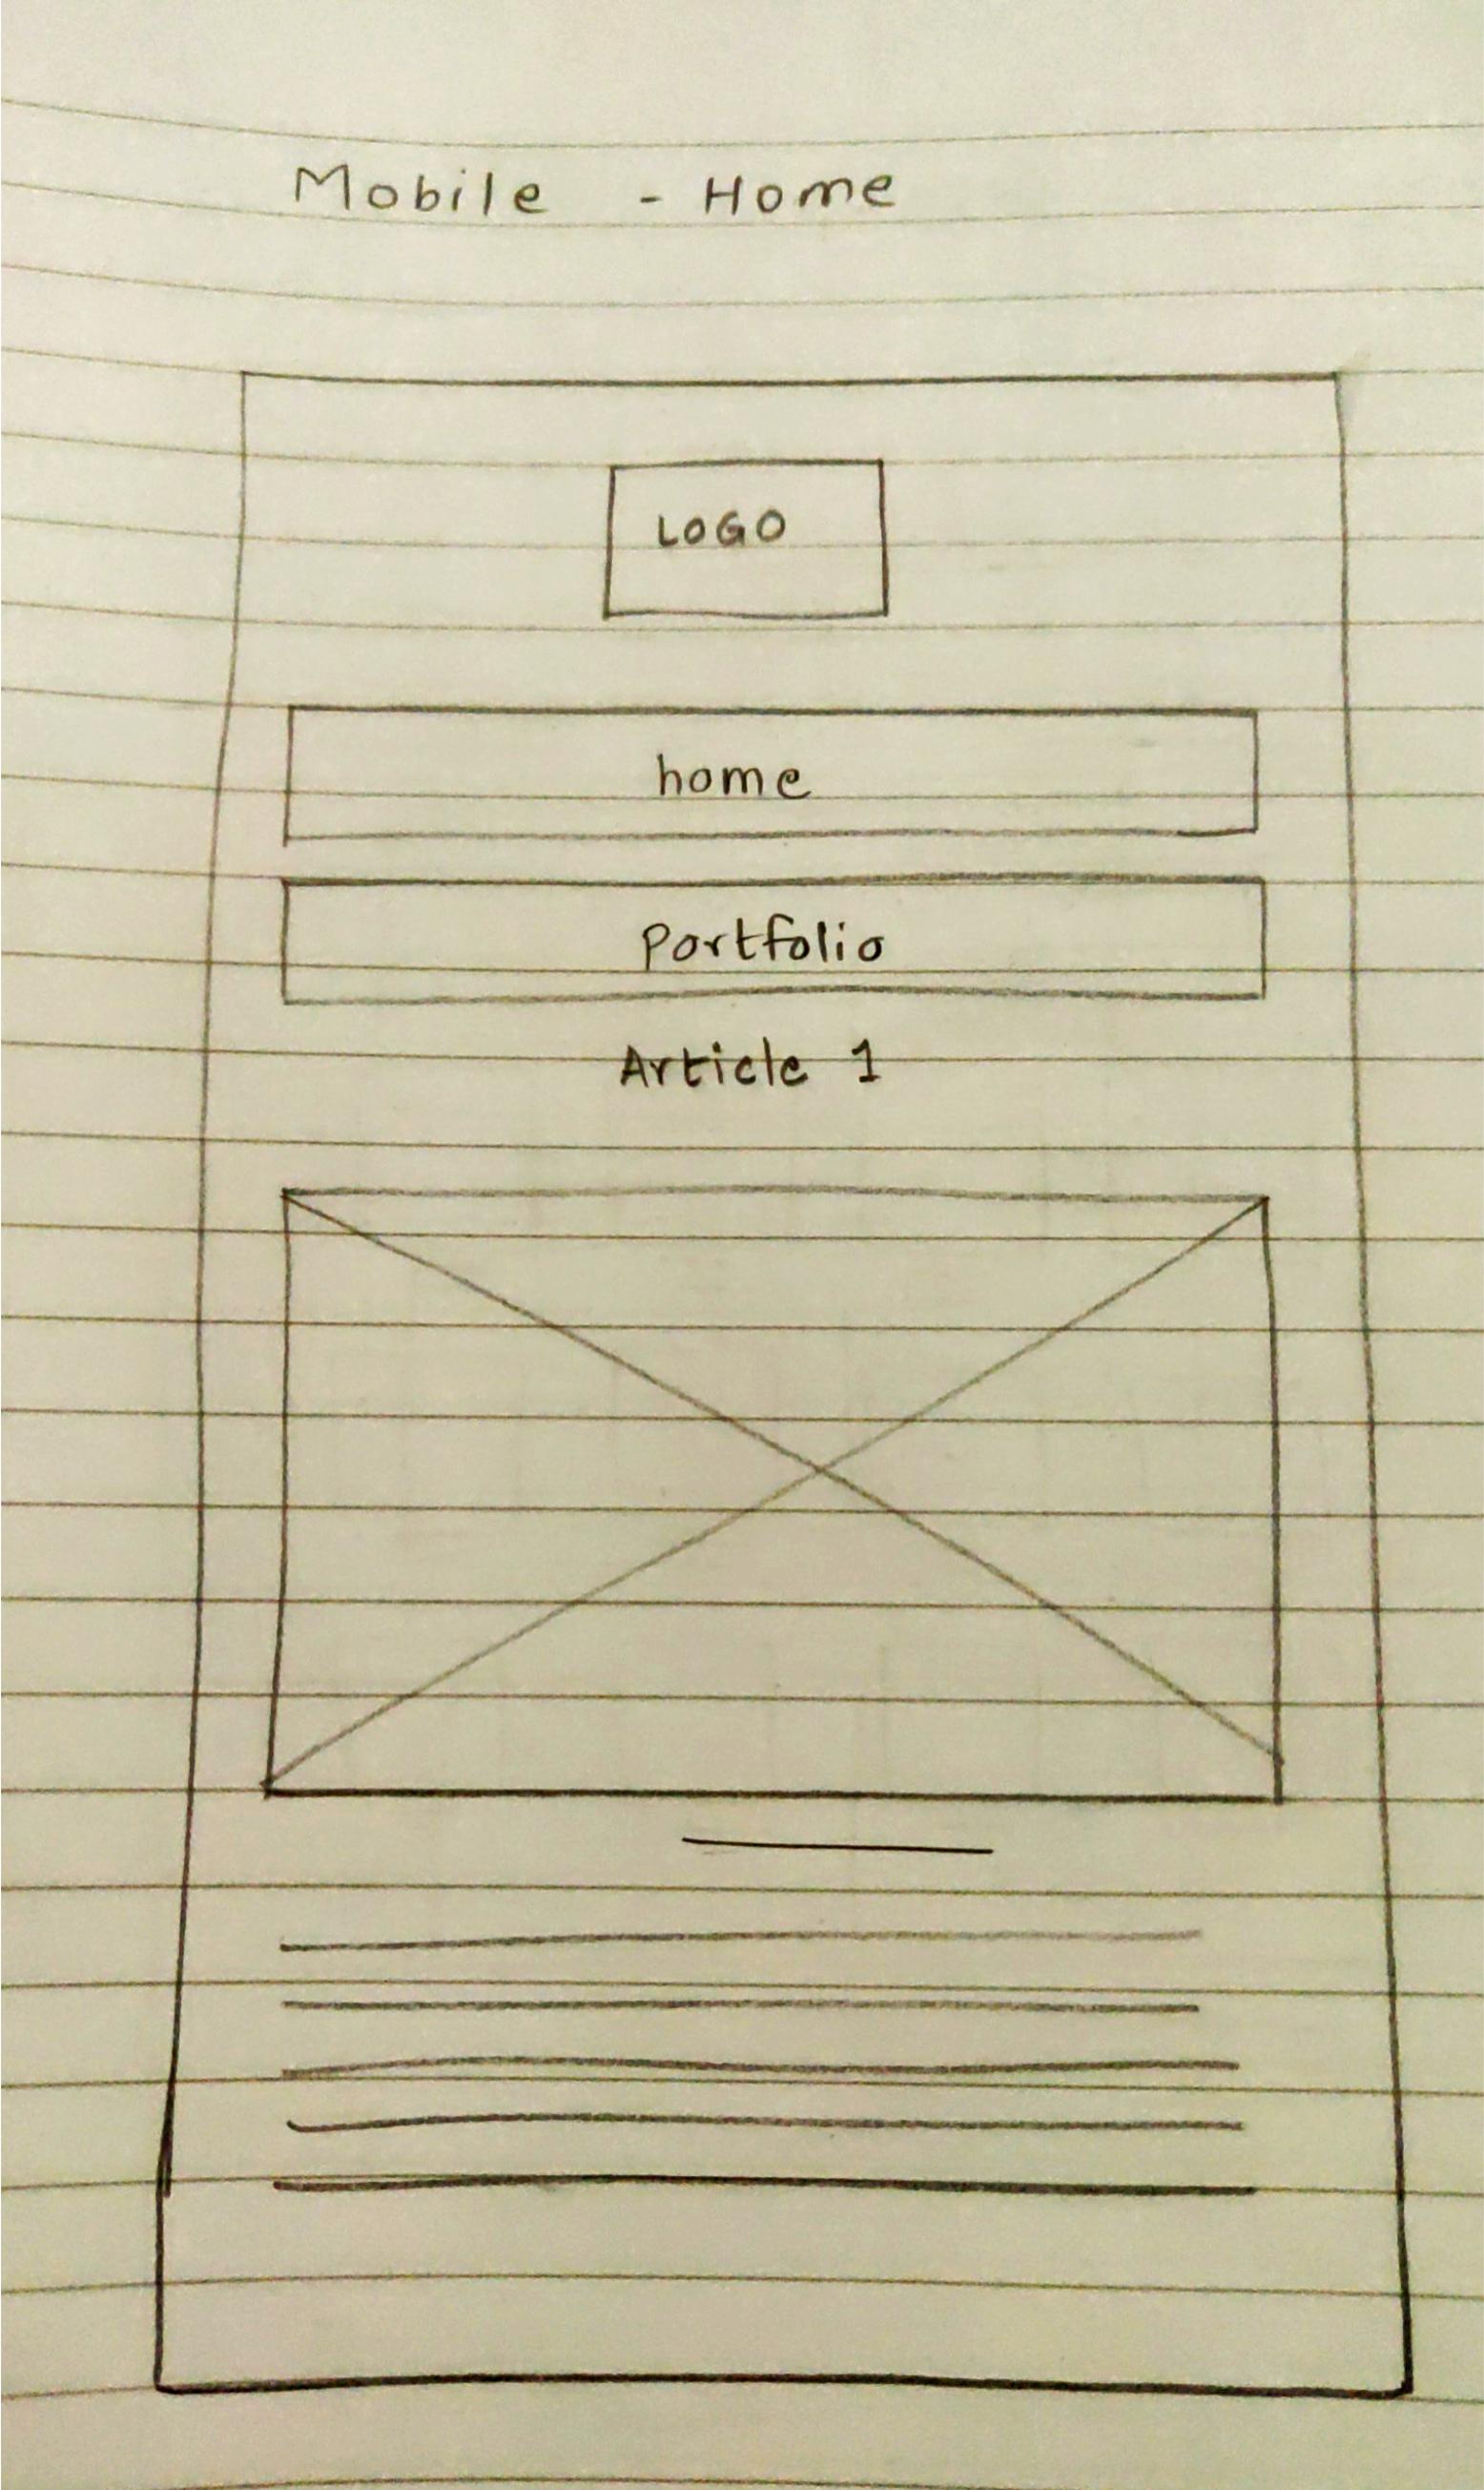 Mobile - Home
LOGO
home
Portfolio
Article 1